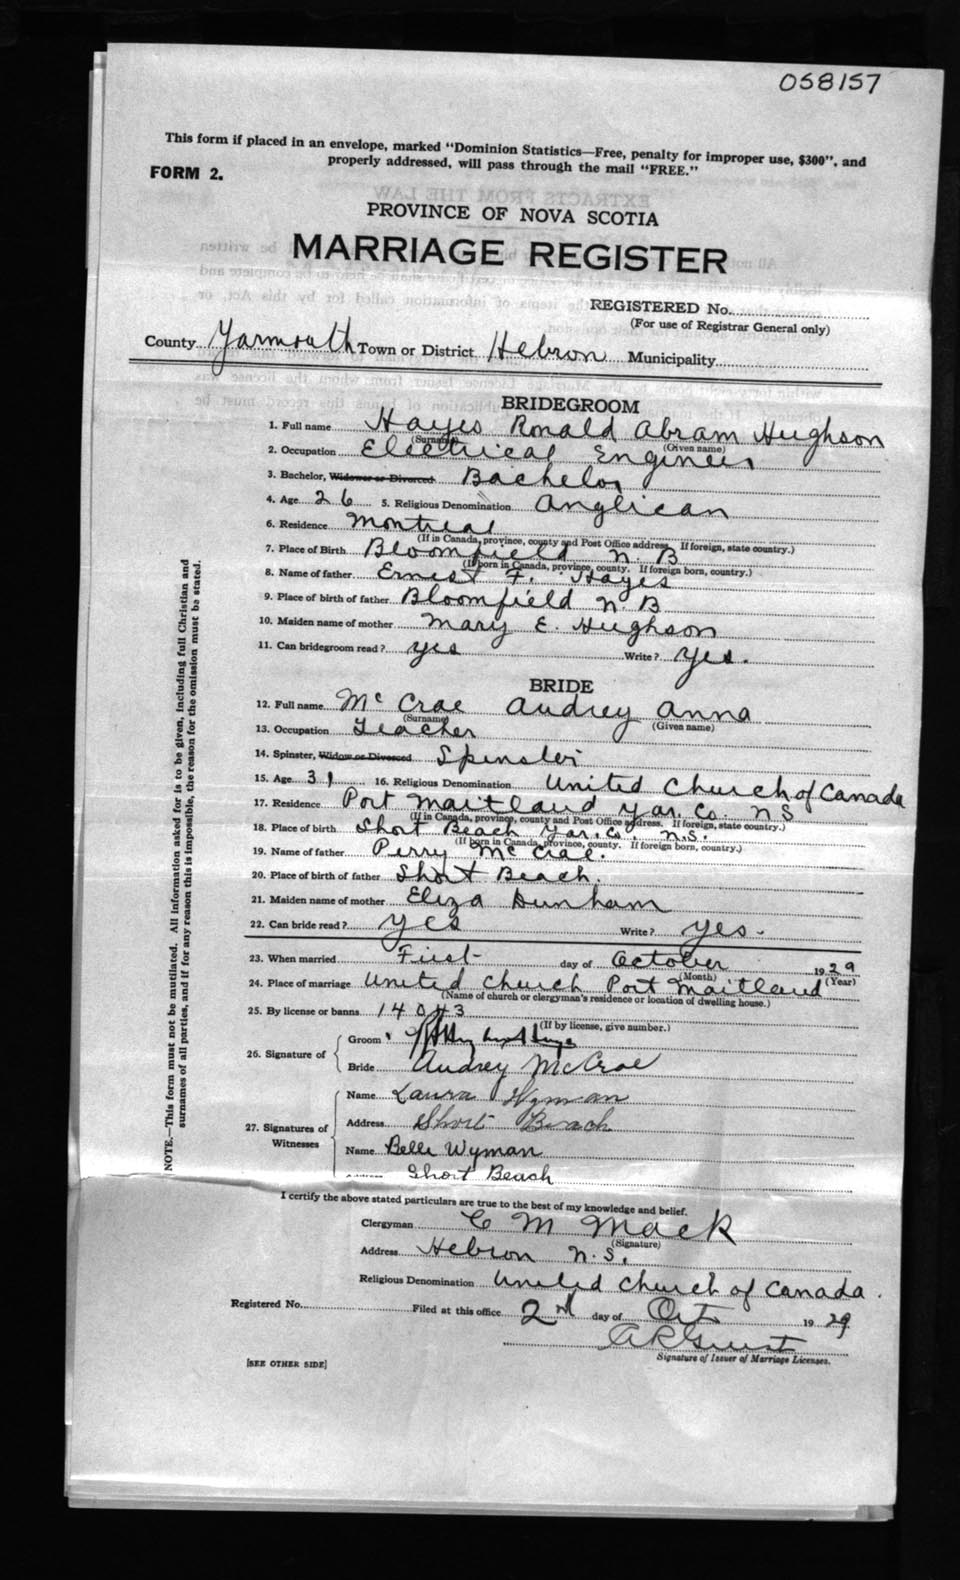 058157
This form if placed in an envelope, marked "Dominion Statistics—Free, penalty for improper use, $300", and
properly addressed, will pass through the mail "FREE."
FORM 2.
PROVINCE OF NOVA SCOTIA
MARRIAGE REGISTER
REGISTERED No.
(For use of Registrar General only)
County Yarmouth Town or District Hebron Municipality
BRIDEGROOM
1. Full name Hayes Ronald Abram Hughson
(Surname) (Given name)
2. Occupation Electrical Engineer
3. Bachelor, Widower or Divorced Bachelor
4. Age 26 5. Religious Denomination Anglican
6. Residence Montreal
(If in Canada, province, county and Post Office address. If foreign, state country.)
7. Place of Birth Bloomfield N. B
(If born in Canada, province, county. If foreign born, country.)
8. Name of father Ernest F. Hayes
9. Place of birth of father Bloomfield N. B
10. Maiden name of mother Mary E. Hughson
11. Can bridegroom read? yes Write? yes.
BRIDE
12. Full name McCrae Audrey Anna
(Surname) (Given name)
13. Occupation Teacher
14. Spinster, Widow or Divorced Spinster
15. Age 31 16. Religious Denomination United Church of Canada
17. Residence Port Maitland Yar. Co. N S
(If in Canada, province, county and Post Office address. If foreign, state country.)
18. Place of birth Short Beach Yar. Co. N.S.
(If born in Canada, province, county. If foreign born, country.)
19. Name of father Perry McCrae.
20. Place of birth of father Short Beach.
21. Maiden name of mother Eliza Dunham
22. Can bride read? yes Write? yes.
23. When married First day of October 1929
(Month) (Year)
24. Place of marriage United Church Port Maitland
(Name of church or clergyman's residence or location of dwelling house.)
25. By license or banns 14043
(If by license, give number.)
26. Signature of
Groom
Bride Audrey McCrae
27. Signatures of Witnesses
Name Laura Wyman
Address Short Beach
Name Belle Wyman
Short Beach
I certify the above stated particulars are true to the best of my knowledge and belief.
Clergyman C M Mack
(Signature)
Address Hebron N.S.
Religious Denomination United Church of Canada.
Registered No. Filed at this office 2nd day of Oct 1929
Signature of Issuer of Marriage Licenses.
[SEE OTHER SIDE]
NOTE.—This form must not be mutilated. All information asked for is to be given, including full Christian and
surnames of all parties, and if for any reason this is impossible, the reason for the omission must be stated.